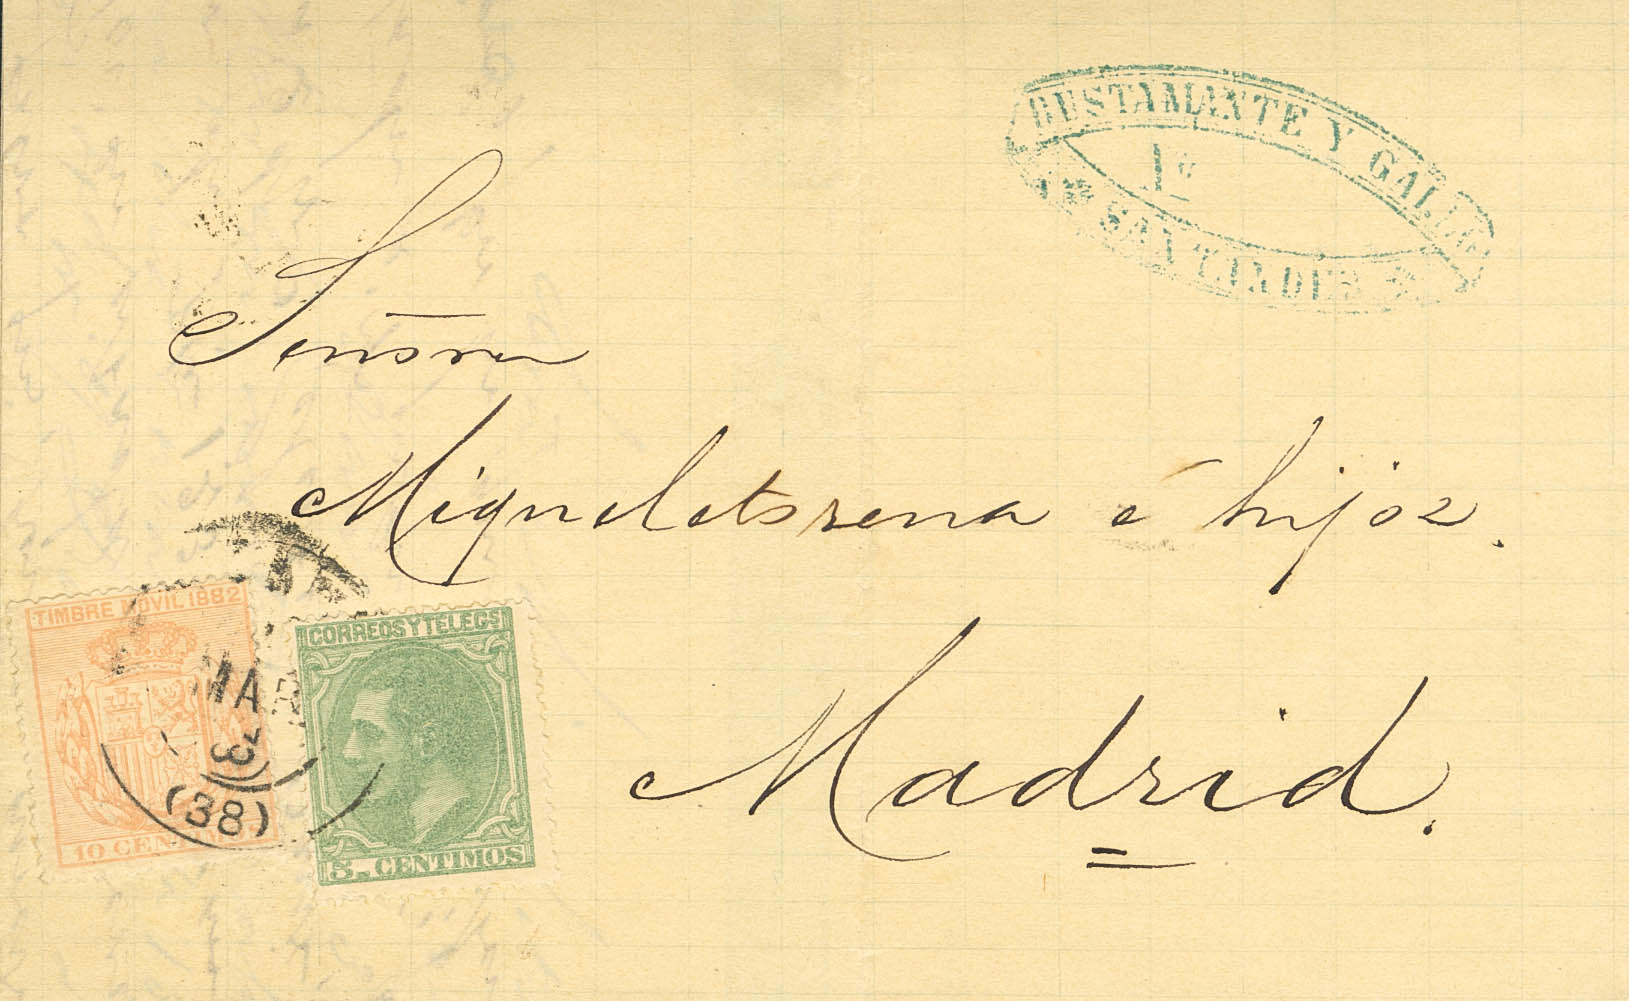 BUSTAMANTE Y GALLA
1º
SANTANDER
Señora
Migueletorena é hijos.
Madrid.
TIMBRE MOVIL 1882
10 CENT
MAR
(38)
CORREOS Y TELEGS
5. CENTIMOS